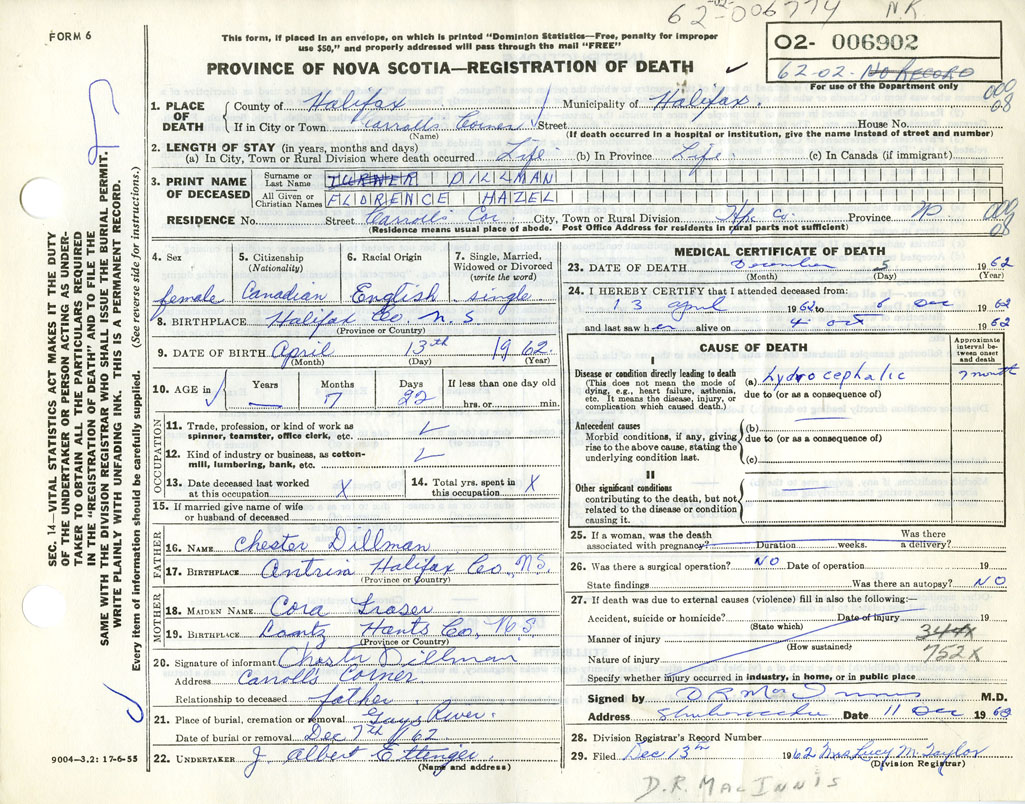 62-006774 N.R.
FORM 6
This form, if placed in an envelope, on which is printed "Dominion Statistics—Free, penalty for improper
use $50," and properly addressed will pass through the mail "FREE"
02- 006902
62-02- No Record
For use of the Department only
PROVINCE OF NOVA SCOTIA—REGISTRATION OF DEATH
000
08
1. PLACE OF DEATH County of Halifax Municipality of Halifax.
If in City or Town Carroll's Corner Street House No.
(Name) (If death occurred in a hospital or institution, give the name instead of street and number)
2. LENGTH OF STAY (in years, months and days)
(a) In City, Town or Rural Division where death occurred Life. (b) In Province Life. (c) In Canada (if immigrant)
3. PRINT NAME OF DECEASED Surname or Last Name TURNER DILLMAN
All Given or Christian Names FLORENCE HAZEL
RESIDENCE No. Street Carroll's Cor. City, Town or Rural Division Hfx Co. Province
(Residence means usual place of abode. Post Office Address for residents in rural parts not sufficient)
000
08
4. Sex 5. Citizenship (Nationality) 6. Racial Origin 7. Single, Married, Widowed or Divorced (write the word)
female Canadian English single
8. BIRTHPLACE Halifax Co. N.S
(Province or Country)
9. DATE OF BIRTH April 13th 1962
(Month) (Day) (Year)
10. AGE in Years Months Days If less than one day old
7 22 hrs. or min.
OCCUPATION
11. Trade, profession, or kind of work as
spinner, teamster, office clerk, etc.
12. Kind of industry or business, as cotton-
mill, lumbering, bank, etc.
13. Date deceased last worked at this occupation X 14. Total yrs. spent in this occupation X
15. If married give name of wife
or husband of deceased
FATHER
16. NAME Chester Dillman
17. BIRTHPLACE Antrim Halifax Co., N.S.
(Province or Country)
MOTHER
18. MAIDEN NAME Cora Fraser
19. BIRTHPLACE Lantz Hants Co, N S.
(Province or Country)
20. Signature of informant Chester Dillman
Address Carroll's Corner
Relationship to deceased father
21. Place of burial, cremation or removal Gays River.
Date of burial or removal Dec 7th /62
22. UNDERTAKER J. Albert Ettinger
(Name and address)
9004—3.2: 17-6-55
MEDICAL CERTIFICATE OF DEATH
23. DATE OF DEATH December 5 1962
(Month) (Day) (Year)
24. I HEREBY CERTIFY that I attended deceased from:
13 April 1962 to 5 Dec 1962
and last saw her alive on 4 Oct 1962
CAUSE OF DEATH
Approximate interval between onset and death
I
Disease or condition directly leading to death
(This does not mean the mode of
dying, e.g., heart failure, asthenia,
etc. It means the disease, injury, or
complication which caused death.)
(a) hydrocephalic 7 month
due to (or as a consequence of)
Antecedent causes
Morbid conditions, if any, giving
rise to the above cause, stating the
underlying condition last.
(b)
due to (or as a consequence of)
(c)
II
Other significant conditions
contributing to the death, but not
related to the disease or condition
causing it.
25. If a woman, was the death associated with pregnancy? Duration weeks. Was there a delivery?
26. Was there a surgical operation? NO Date of operation 19
State findings Was there an autopsy? NO
27. If death was due to external causes (violence) fill in also the following:—
Accident, suicide or homicide? Date of injury 19
(State which)
Manner of injury 344x
(How sustained)
Nature of injury 752X
Specify whether injury occurred in industry, in home, or in public place
Signed by D R MacInnis M.D.
Address Shubenacadie Date 11 Dec 1962
28. Division Registrar's Record Number
29. Filed Dec 13th 1962 Mrs Lucy M. Taylor
(Division Registrar)
D.R. MACINNIS
SEC. 14—VITAL STATISTICS ACT MAKES IT THE DUTY
OF THE UNDERTAKER OR PERSON ACTING AS UNDER-
TAKER TO OBTAIN ALL THE PARTICULARS REQUIRED
IN THE "REGISTRATION OF DEATH" AND TO FILE THE
SAME WITH THE DIVISION REGISTRAR WHO SHALL ISSUE THE BURIAL PERMIT.
WRITE PLAINLY WITH UNFADING INK. THIS IS A PERMANENT RECORD.
Every item of information should be carefully supplied. (See reverse side for instructions.)